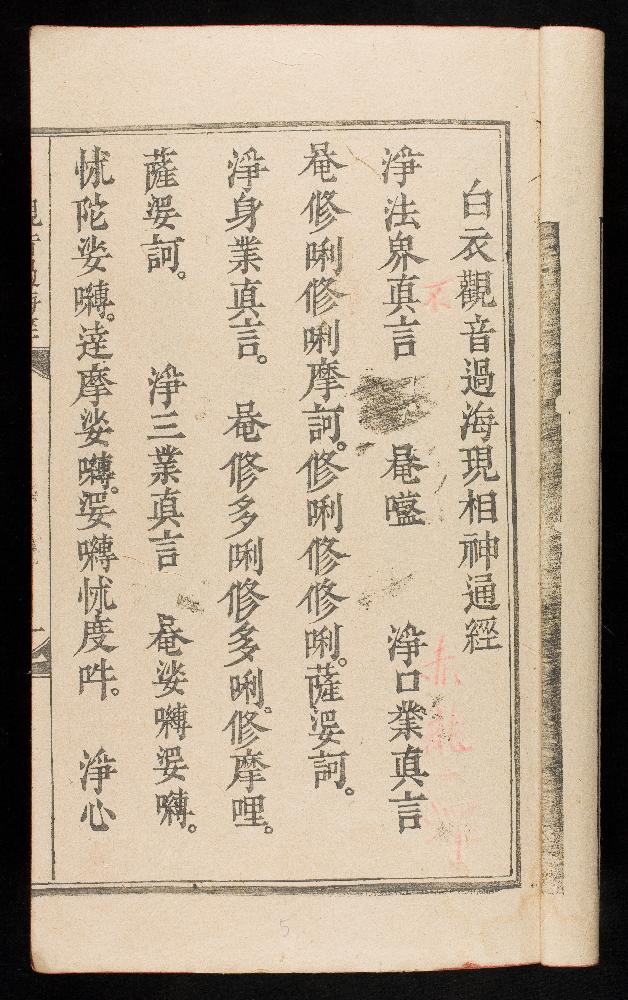 白衣觀音過海現相神通經
淨法界真言　唵㘕　淨口業真言
唵修唎修唎摩訶。修唎修修唎。薩婆訶。
淨身業真言。　唵修多唎修多唎。修摩哩。
薩婆訶。　淨三業真言　唵娑嚩婆嚩。
怵陀娑嚩。達摩娑嚩。婆嚩怵度吽。　淨心